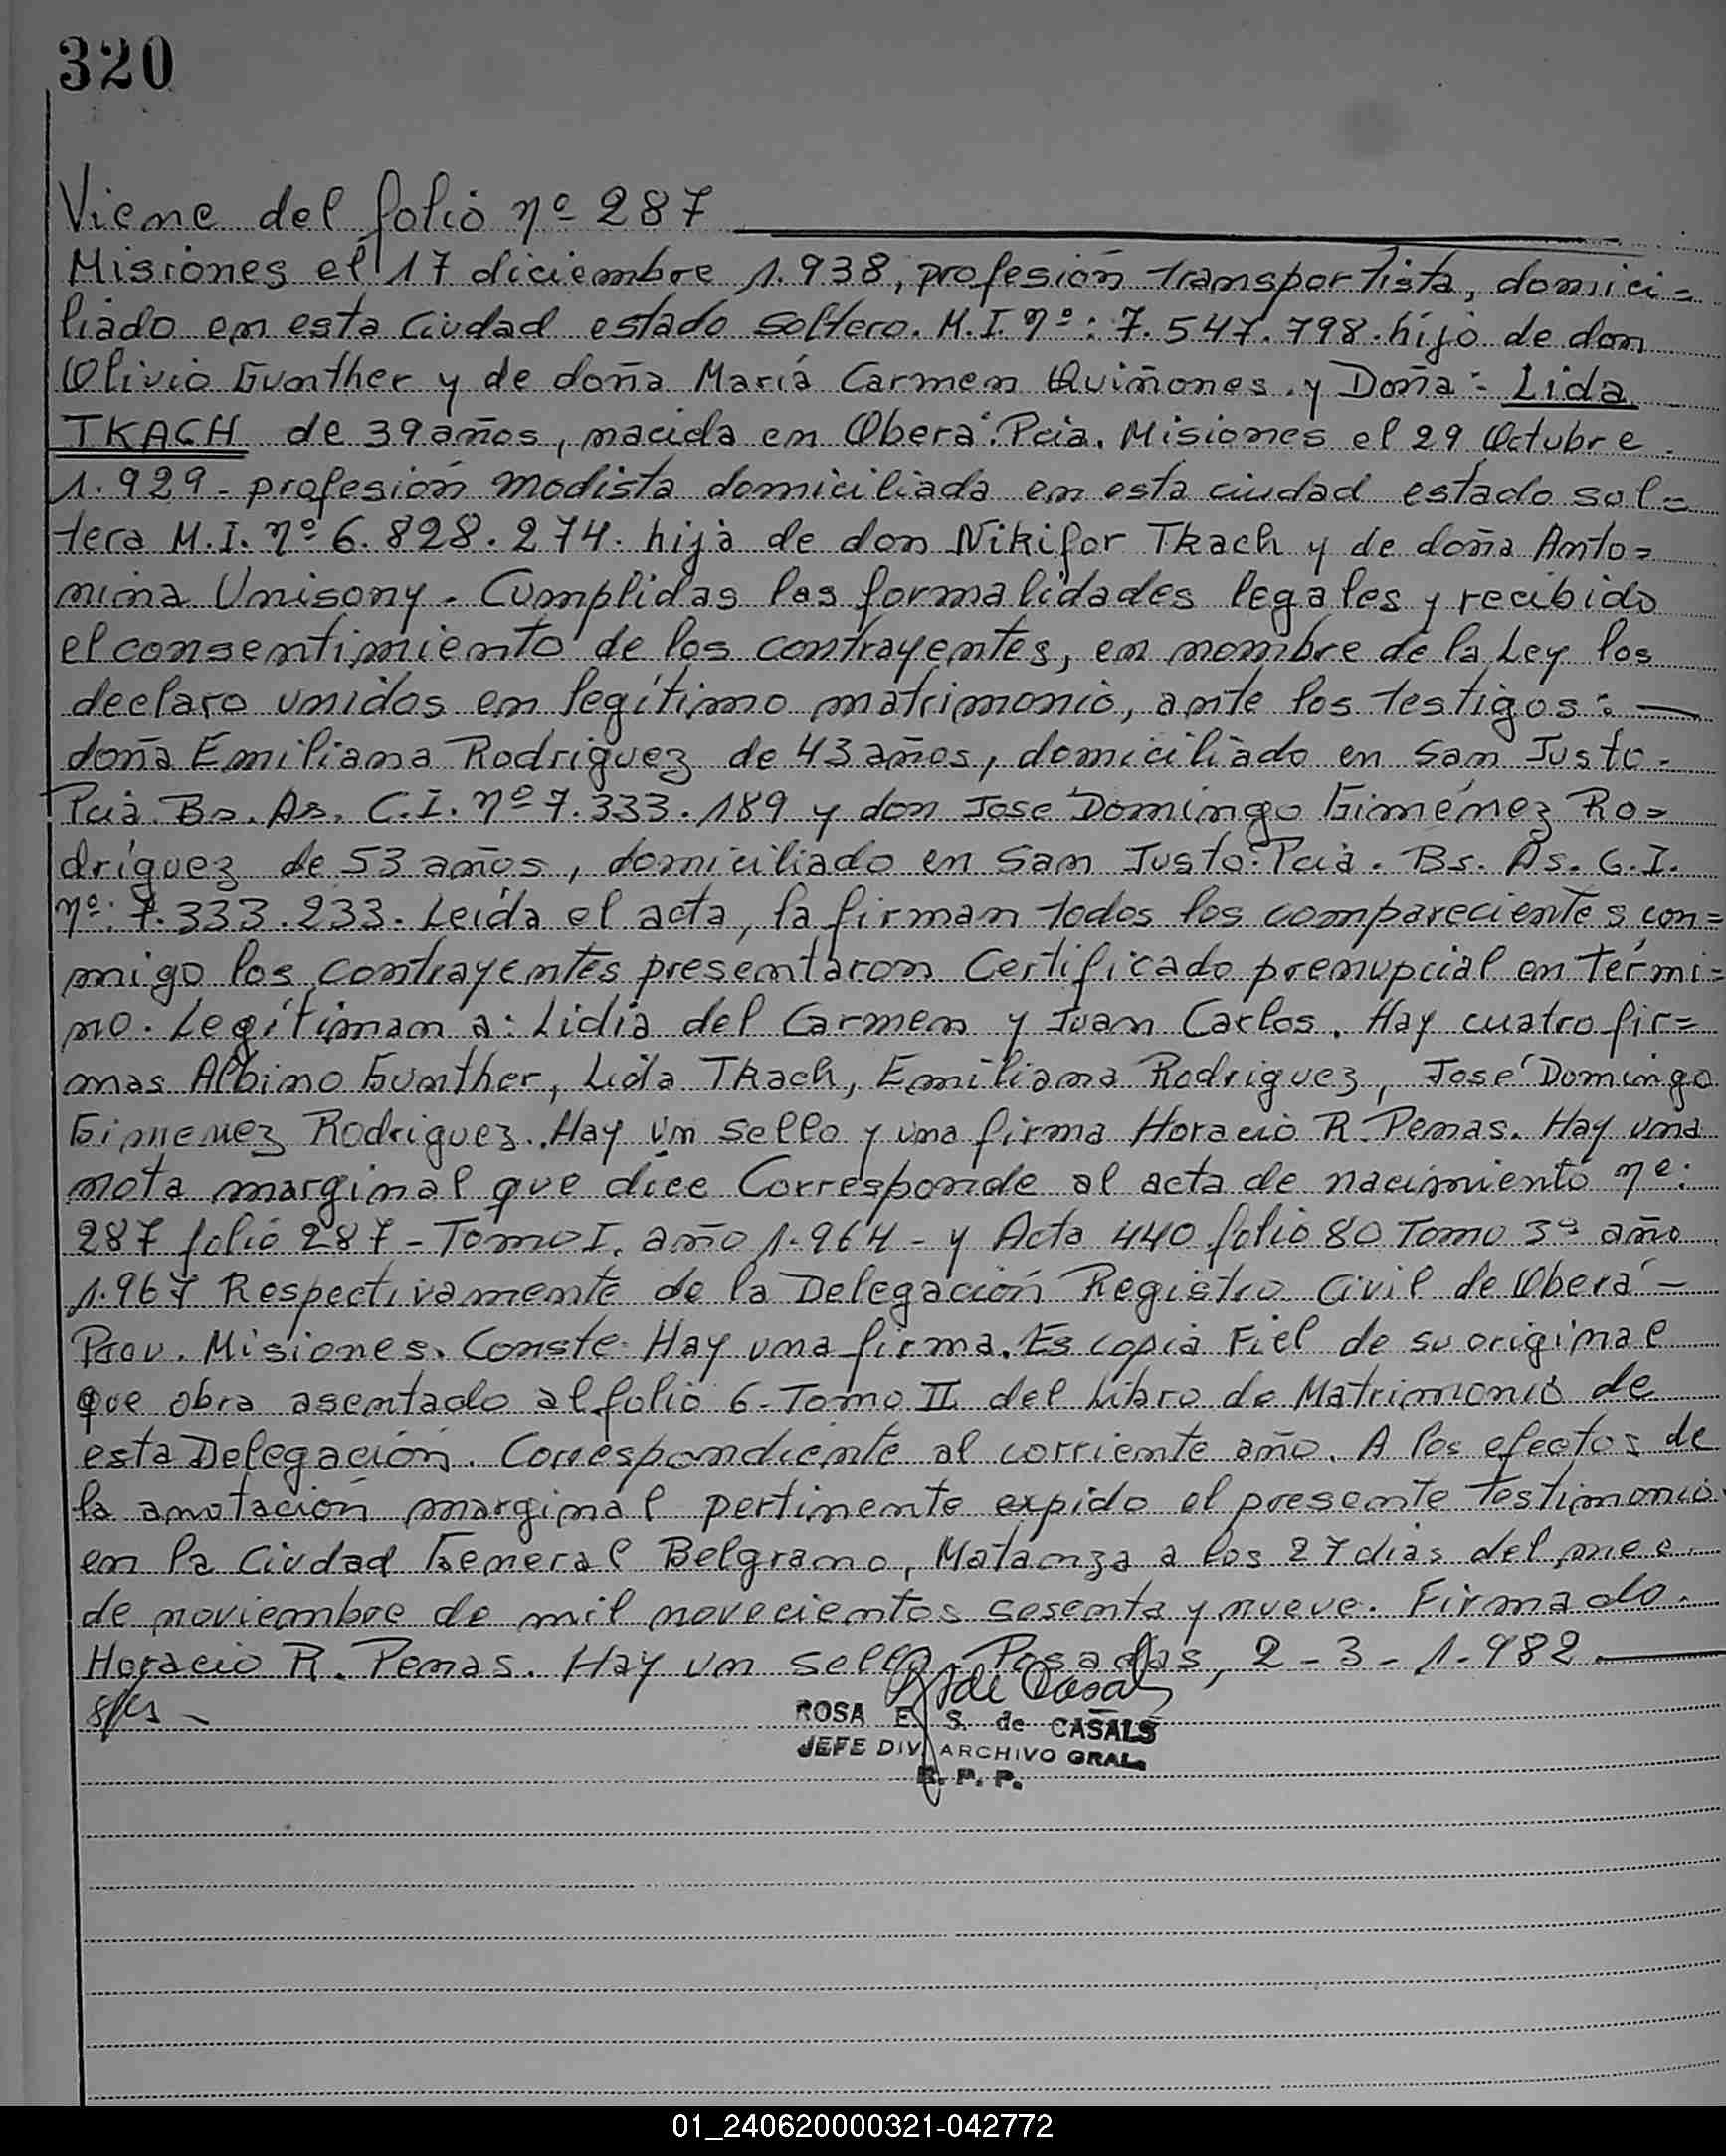 320
Viene del folio nº 287
Misiones el 17 diciembre 1.938, profesión transportista, domici=
liado en esta Ciudad estado soltero. M.I. nº: 7.547.798. hijo de don
Olivio Gunther y de doña María Carmen Quiñones. y Doña: Lida
TKACH de 39 años, nacida en Oberá. Pcia. Misiones el 29 Octubre
1.929 - profesión modista domiciliada en esta ciudad estado sol=
tera M.I. nº 6.828.274. hija de don Nikifor Tkach y de doña Anto=
nina Unisony. Cumplidas las formalidades legales y recibido
el consentimiento de los contrayentes, en nombre de la Ley los
declaro unidos en legítimo matrimonio, ante los testigos: —
doña Emiliana Rodriguez de 43 años, domiciliado en San Justo.
Pcia. Bs. As. C.I. nº 7.333.189 y don Jose Domingo Giménez Ro=
dríguez de 53 años, domiciliado en San Justo. Pcia. Bs. As. C.I.
nº: 7.333.233. Leída el acta, la firman todos los comparecientes con=
migo los contrayentes presentaron Certificado prenupcial en térmi=
no. Legítiman a: Lidia del Carmen y Juan Carlos. Hay cuatro fir=
mas Albino Gunther, Lida Tkach, Emiliana Rodriguez, José Domingo
Gimenez Rodriguez. Hay un sello y una firma Horacio R. Penas. Hay una
nota marginal que dice Corresponde al acta de nacimiento nº:
287 folio 287 - Tomo I. año 1.964 - y Acta 440 folio 80 Tomo 3º año
1.967 Respectivamente de la Delegación Registro Civil de Oberá -
Prov. Misiones. Conste Hay una firma. Es copia Fiel de su original
que obra asentado al folio 6 - Tomo II del Libro de Matrimonio de
esta Delegación. Correspondiente al corriente año. A los efectos de
la anotación marginal pertinente expido el presente testimonio.
en la Ciudad General Belgrano, Matanza a los 27 dias del mes
de noviembre de mil novecientos sesenta y nueve. Firmado.
Horacio R. Penas. Hay un sello. Posadas, 2-3-1.982.
ROSA E. S. de CASALS
JEFE DIV. ARCHIVO GRAL.
R. P. P.
01_240620000321-042772